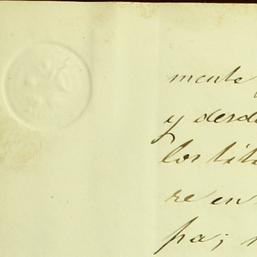 mente
y desde
los títu
re en
pa;